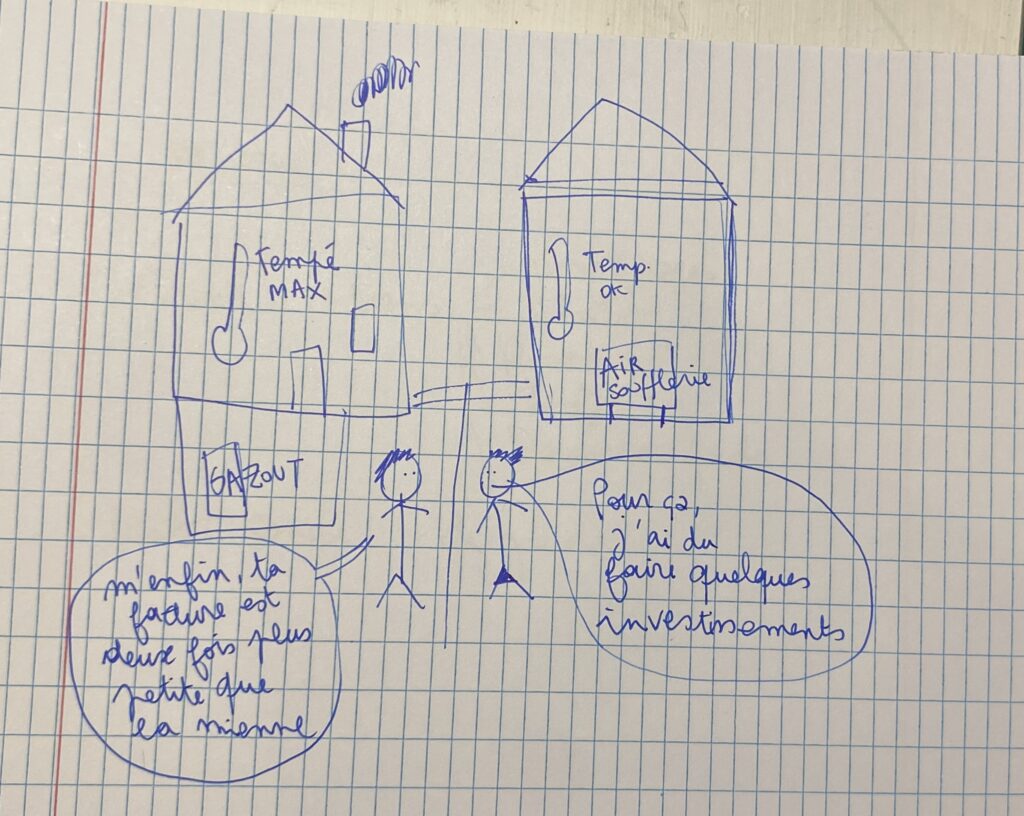 Tempé
MAX
GAZOUT
m'enfin, ta
facture est
deux fois plus
petite que
la mienne
Temp.
OK
AIR
soufflerie
Pour ça,
j'ai du
faire quelques
investissements